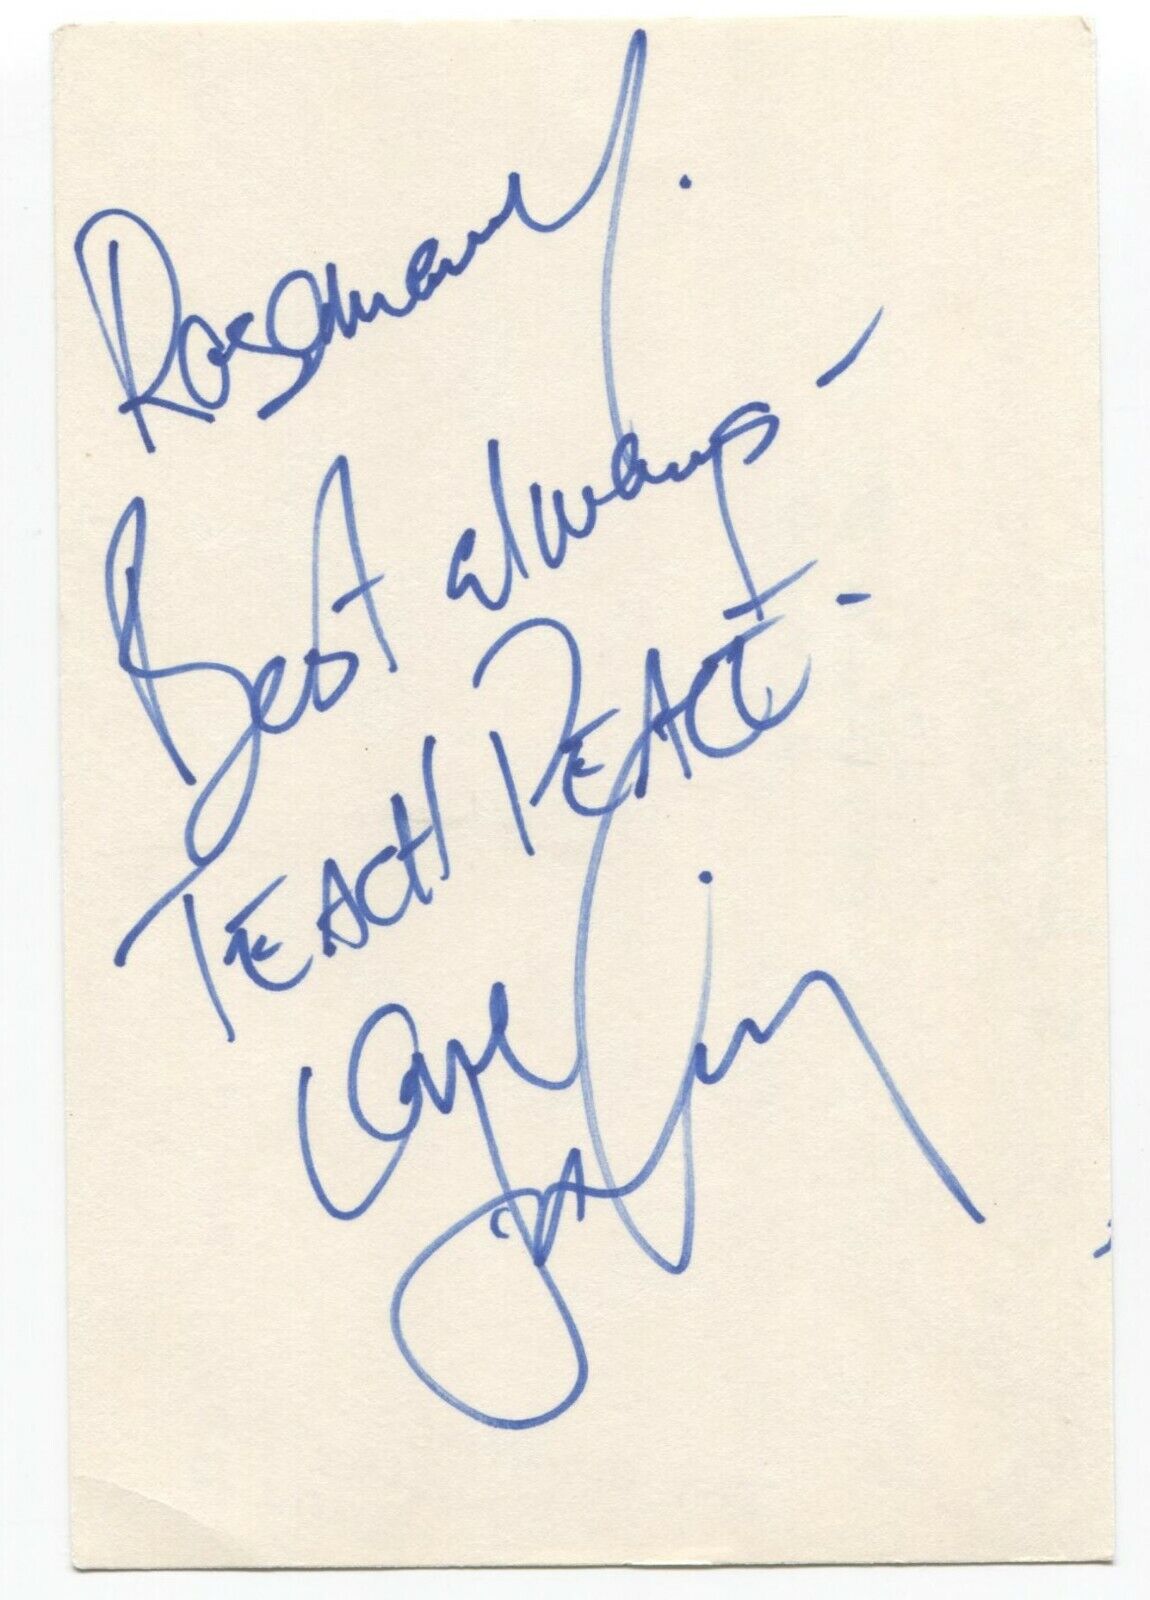 Rosemary.
Best always -
TEACH PEACE -
Love